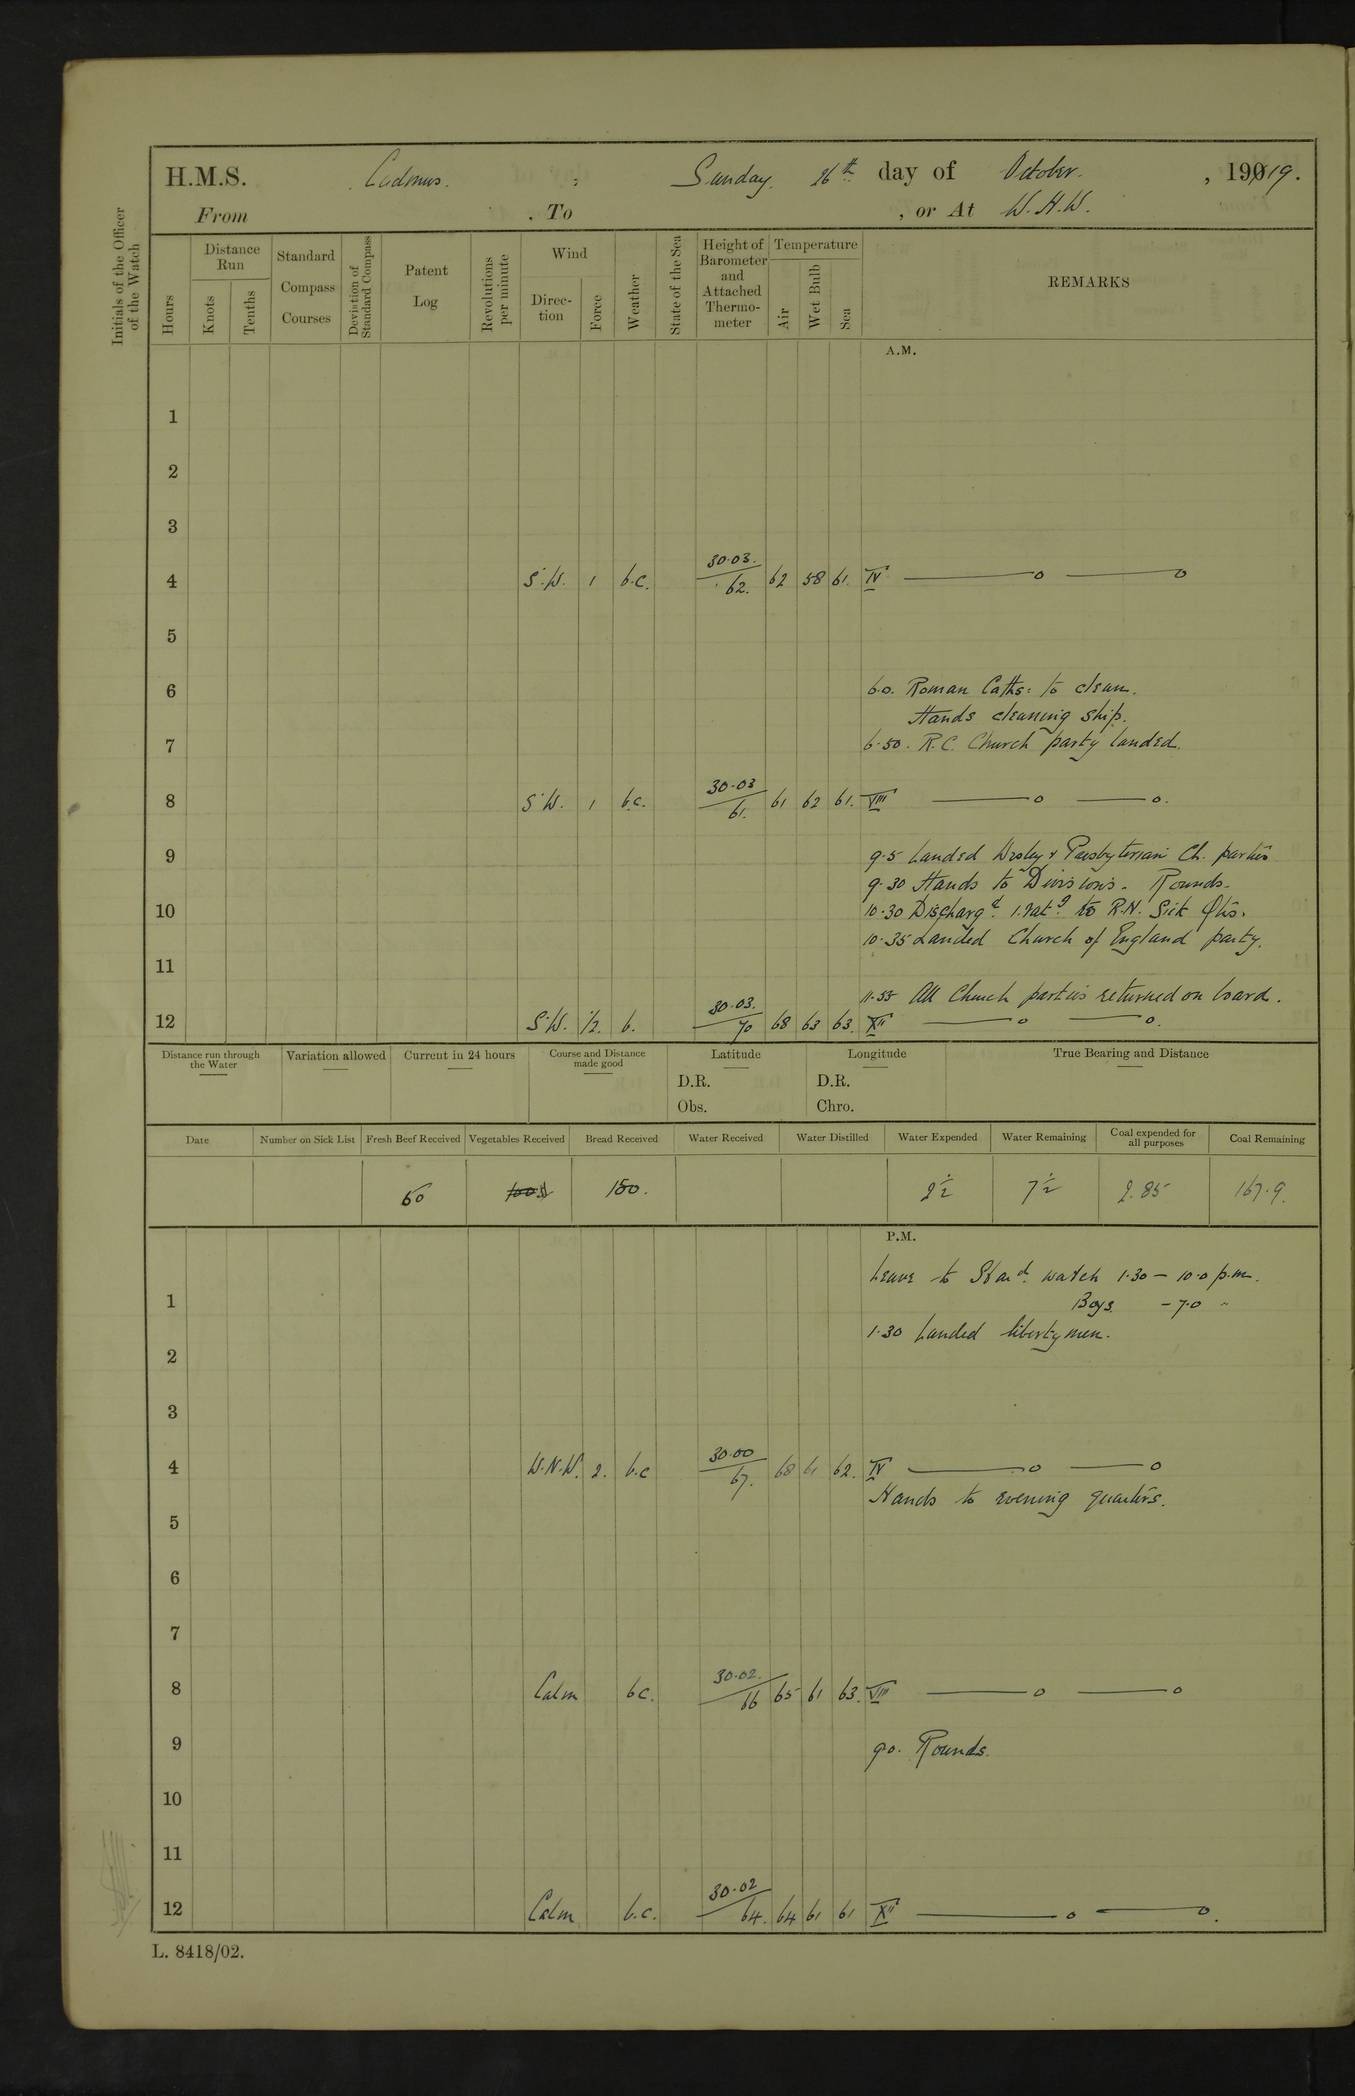 H.M.S. Cadmus. Sunday. 26th day of October. , 19019.
From , To , or At W.H.W.
Initials of the Officer of the Watch
Hours
Distance Run
Knots Tenths
Standard Compass Courses
Deviation of Standard Compass
Patent Log
Revolutions per minute
Wind
Direction Force
Weather
State of the Sea
Height of Barometer and Attached Thermometer
Temperature
Air Wet Bulb Sea
REMARKS
A.M.
1
2
3
4 S.W. 1 b.c. 30.03. 62. 62 58 61. IV
5
6 6.0. Roman Caths: to clean.
Hands cleaning ship.
7 6.50. R.C. Church party landed.
8 S.W. 1 b.c. 30.03 61. 61 62 61. VIII
9 9.5 Landed Wesley & Presbyterian Ch. parties
9.30 Hands to Divisions. Rounds.
10 10.30 Discharg'd 1 rat'g to R.N. Sick Qtrs.
10.35 Landed Church of England party.
11
11.55 All Church parties returned on board.
12 S.W. 1/2. b. 30.03. 70 68 63 63. XII
Distance run through the Water
Variation allowed
Current in 24 hours
Course and Distance made good
Latitude
D.R.
Obs.
Longitude
D.R.
Chro.
True Bearing and Distance
Date Number on Sick List Fresh Beef Received Vegetables Received Bread Received Water Received Water Distilled Water Expended Water Remaining Coal expended for all purposes Coal Remaining
60 150. 2½ 7½ 2.85 167.9.
P.M.
Leave to Starb'd. watch 1.30 – 10.0 p.m.
1 Boys. – 7.0 "
1.30 Landed liberty men.
2
3
4 W.N.W. 2. b.c 30.00 67. 68 61 62. IV
Hands to evening quarters.
5
6
7
8 Calm b.c. 30.02. 66 65 61 63. VIII
9 9.0. Rounds.
10
11
12 Calm b.c. 30.02 64. 64 61 61 XII
L. 8418/02.